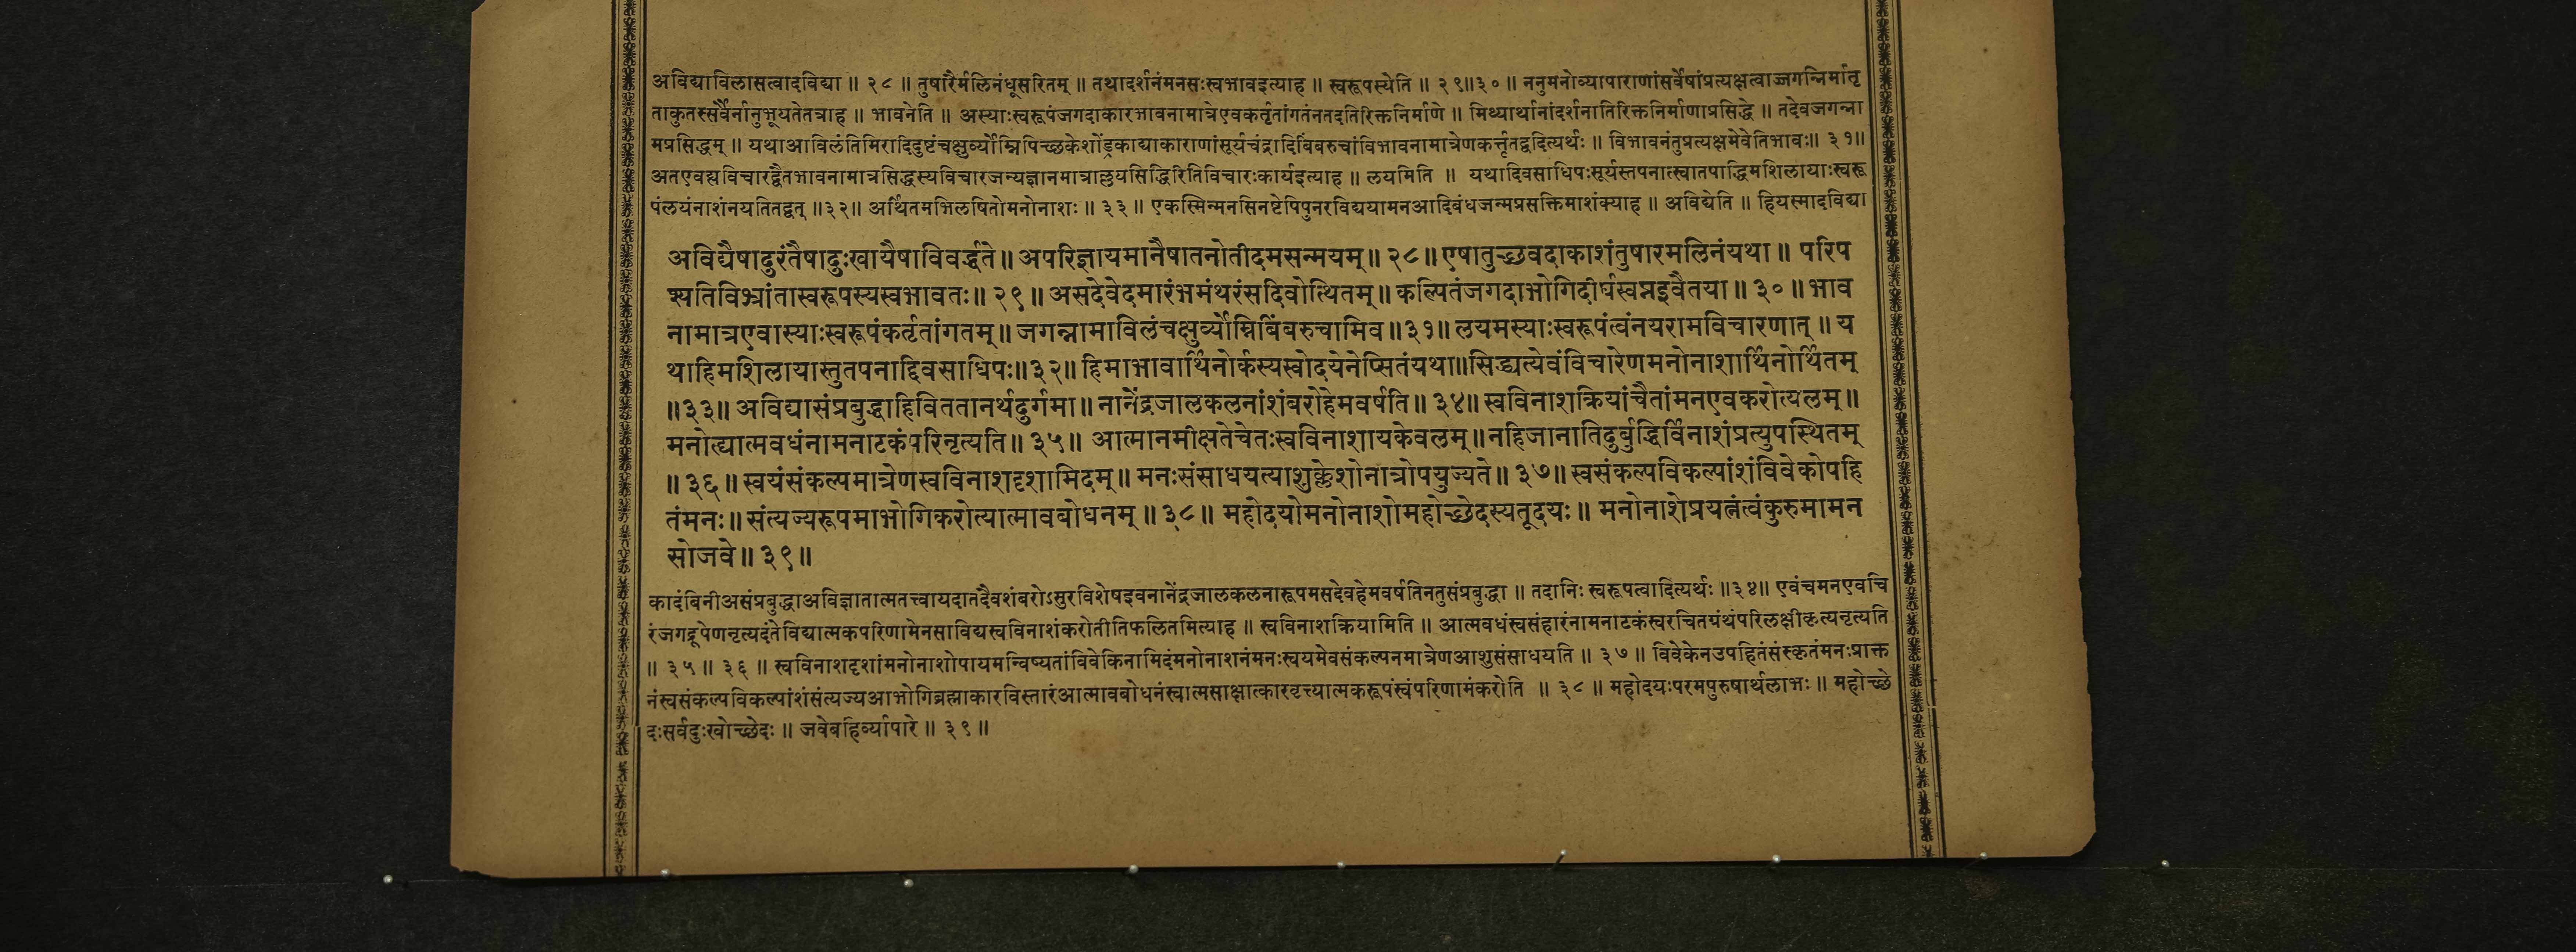 अविद्याविलासत्वादविद्या ॥ २८ ॥ तुषारैर्मलिनंधूसरितम् ॥ तथादर्शनंमनसःस्वभावइत्याह ॥ स्वरूपस्येति ॥ २९॥३० ॥ ननुमनोव्यापाराणांसर्वेषांप्रत्यक्षत्वाज्जगन्निर्मातृ
ताकुतस्सर्वैर्नानुभूयतेतत्राह ॥ भावनेति ॥ अस्याःस्वरूपंजगदाकारभावनामात्रेएवकर्तृतांगतंनतदतिरिक्तनिर्माणे ॥ मिथ्यार्थानांदर्शनातिरिक्तनिर्माणाप्रसिद्धे ॥ तदेवजगन्ना
मप्रसिद्धम् ॥ यथाआविलंतिमिरादिदुष्टंचक्षुर्व्योम्निपिच्छकेशोंड्रकाद्याकाराणांसूर्यचंद्रादिबिंबरुचांविभावनामात्रेणकर्तृतद्वदित्यर्थः ॥ विभावनंतुप्रत्यक्षमेवेतिभावः॥ ३१॥
अतएवह्यविचारद्वैतभावनामात्रसिद्धस्यविचारजन्यज्ञानमात्राल्लयसिद्धिरितिविचारःकार्यइत्याह ॥ लयमिति ॥ यथादिवसाधिपःसूर्यस्तपनात्स्वातपाद्धिमशिलायाःस्वरू
पंलयंनाशंनयतितद्वत् ॥३२॥ अर्थितमभिलषितोमनोनाशः ॥ ३३ ॥ एकस्मिन्मनसिनष्टेपिपुनरविद्ययामनआदिबंधजन्मप्रसक्तिमाशंक्याह ॥ अविद्येति ॥ हियस्मादविद्या
अविद्यैषादुरंतैषादुःखायैषाविवर्द्धते॥ अपरिज्ञायमानैषातनोतीदमसन्मयम्॥ २८॥ एषातुच्छवदाकाशंतुषारमलिनंयथा ॥ परिप
श्यतिविभ्रांतास्वरूपस्यस्वभावतः॥ २९॥ असदेवेदमारंभमंथरंसदिवोत्थितम्॥ कल्पितंजगदाभोगिदीर्घस्वप्नइवैतया॥ ३०॥ भाव
नामात्रएवास्याःस्वरूपंकर्तृतांगतम्॥ जगन्नामाविलंचक्षुर्व्योम्निबिंबरुचामिव॥३१॥ लयमस्याःस्वरूपंत्वंनयरामविचारणात्॥ य
थाहिमशिलायास्तुतपनाद्दिवसाधिपः॥३२॥ हिमाभावार्थिनोर्कस्यस्वोदयेनेप्सितंयथा॥सिद्ध्यत्येवंविचारेणमनोनाशार्थिनोर्थितम्
॥३३॥ अविद्यासंप्रबुद्धाहिविततानर्थदुर्गमा॥ नानेंद्रजालकलनांशंबरोहेमवर्षति॥ ३४॥ स्वविनाशक्रियांचैतांमनएवकरोत्यलम्॥
मनोह्यात्मवधंनामनाटकंपरिनृत्यति॥ ३५॥ आत्मानमीक्षतेचेतःस्वविनाशायकेवलम्॥ नहिजानातिदुर्बुद्धिर्विनाशंप्रत्युपस्थितम्
॥ ३६॥ स्वयंसंकल्पमात्रेणस्वविनाशदृशामिदम्॥ मनःसंसाधयत्याशुक्लेशोनात्रोपयुज्यते॥ ३७॥ स्वसंकल्पविकल्पांशंविवेकोपहि
तंमनः॥ संत्यज्यरूपमाभोगिकरोत्यात्मावबोधनम्॥ ३८॥ महोदयोमनोनाशोमहोच्छेदस्यतूदयः॥ मनोनाशेप्रयत्नंत्वंकुरुमामन
सोजवे॥ ३९॥
कादंबिनीअसंप्रबुद्धाअविज्ञातात्मतत्त्वायदातदैवशंबरोऽसुरविशेषइवनानेंद्रजालकलनारूपमसदेवहेमवर्षतिनतुसंप्रबुद्धा ॥ तदानिः स्वरूपत्वादित्यर्थः ॥३४॥ एवंचमनएवचि
रंजगद्रूपेणनृत्यदंतेविद्यात्मकपरिणामेनसाविद्यस्वविनाशंकरोतीतिफलितमित्याह ॥ स्वविनाशक्रियामिति ॥ आत्मवधंस्वसंहारंनामनाटकंस्वरचितग्रंथंपरिलक्षीकृत्यनृत्यति
॥ ३५ ॥ ३६ ॥ स्वविनाशदृशांमनोनाशोपायमन्विष्यतांविवेकिनामिदंमनोनाशनंमनःस्वयमेवसंकल्पनमात्रेणआशुसंसाधयति ॥ ३७ ॥ विवेकेनउपहितंसंस्कृतंमनःप्राक्त
नंस्वसंकल्पविकल्पांशंसंत्यज्यआभोगिब्रह्माकारविस्तारंआत्मावबोधनंस्वात्मसाक्षात्कारवृत्त्यात्मकरूपंस्वंपरिणामंकरोति ॥ ३८ ॥ महोदयःपरमपुरुषार्थलाभः ॥ महोच्छे
दःसर्वदुःखोच्छेदः ॥ जवेबहिर्व्यापारे ॥ ३९ ॥